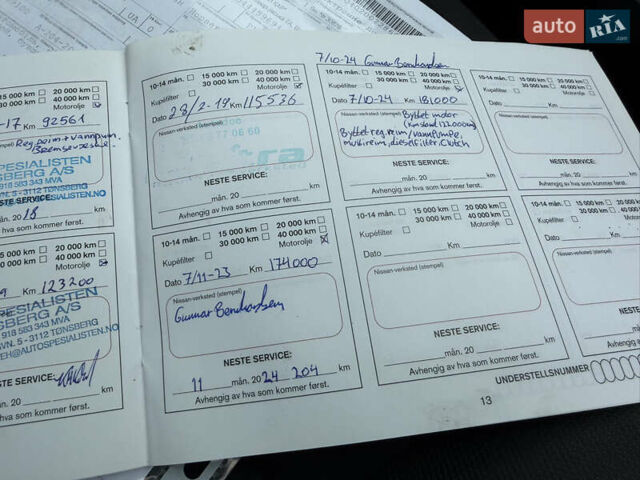 auto RIA.com
7/10-24 Gunnar Bernhardsen
-17 Km 92561
20 000 km
30 000 km 40 000 km
Motorolje
Bremsevæske
SPESIALISTEN
SBERG A/S
918 583 343 MVA
3112 TØNSBERG
SPESIALISTEN.NO
NESTE SERVICE:
mån. 20 18 km
hva som kommer først.
20 000 km
30 000 km 40 000 km
Motorolje
Km 123200
SPESIALISTEN
SBERG A/S
918 583 343 MVA
VN. 5 - 3112 TØNSBERG
EH@AUTOSPESIALISTEN.NO
NESTE SERVICE:
mån. 20 km
av hva som kommer først.
10-14 mån. 15 000 km 20 000 km
30 000 km 40 000 km
Kupéfilter Motorolje
Dato 28/2-19 Km 115536
Nissan-verksted (stempel)
NESTE SERVICE:
mån. 20 km
Avhengig av hva som kommer først.
10-14 mån. 15 000 km 20 000 km
30 000 km 40 000 km
Kupéfilter Motorolje
Dato 7/10-24 Km 181000
Nissan-verksted (stempel) Byttet motor
(Kmstand 122.000km)
Byttet reg.reim/vannpumpe,
multireim, dieselfilter. Clutch
NESTE SERVICE:
mån. 20 km
Avhengig av hva som kommer først.
10-14 mån. 15 000 km 20 000 km
30 000 km 40 000 km
Kupéfilter Motorolje
Dato Km
Nissan-verksted (stempel)
NESTE SERVICE:
mån. 20 km
Avhengig av hva som kommer først.
10-14 mån. 15 000 km 20 000 km
30 000 km 40 000 km
Kupéfilter Motorolje
Dato 7/11-23 Km 174000
Nissan-verksted (stempel)
Gunnar Bernhardsen
NESTE SERVICE:
11 mån. 2024 204 km
Avhengig av hva som kommer først.
10-14 mån. 15 000 km 20 000 km
30 000 km 40 000 km
Kupéfilter Motorolje
Dato Km
Nissan-verksted (stempel)
NESTE SERVICE:
mån. 20 km
Avhengig av hva som kommer først.
10-14 mån. 15 000 km
30 000 km
Kupéfilter
Dato
Nissan-verksted (stempel)
NESTE SERVICE:
mån. 20
Avhengig av hva som kommer
UNDERSTELLSNUMMER
13